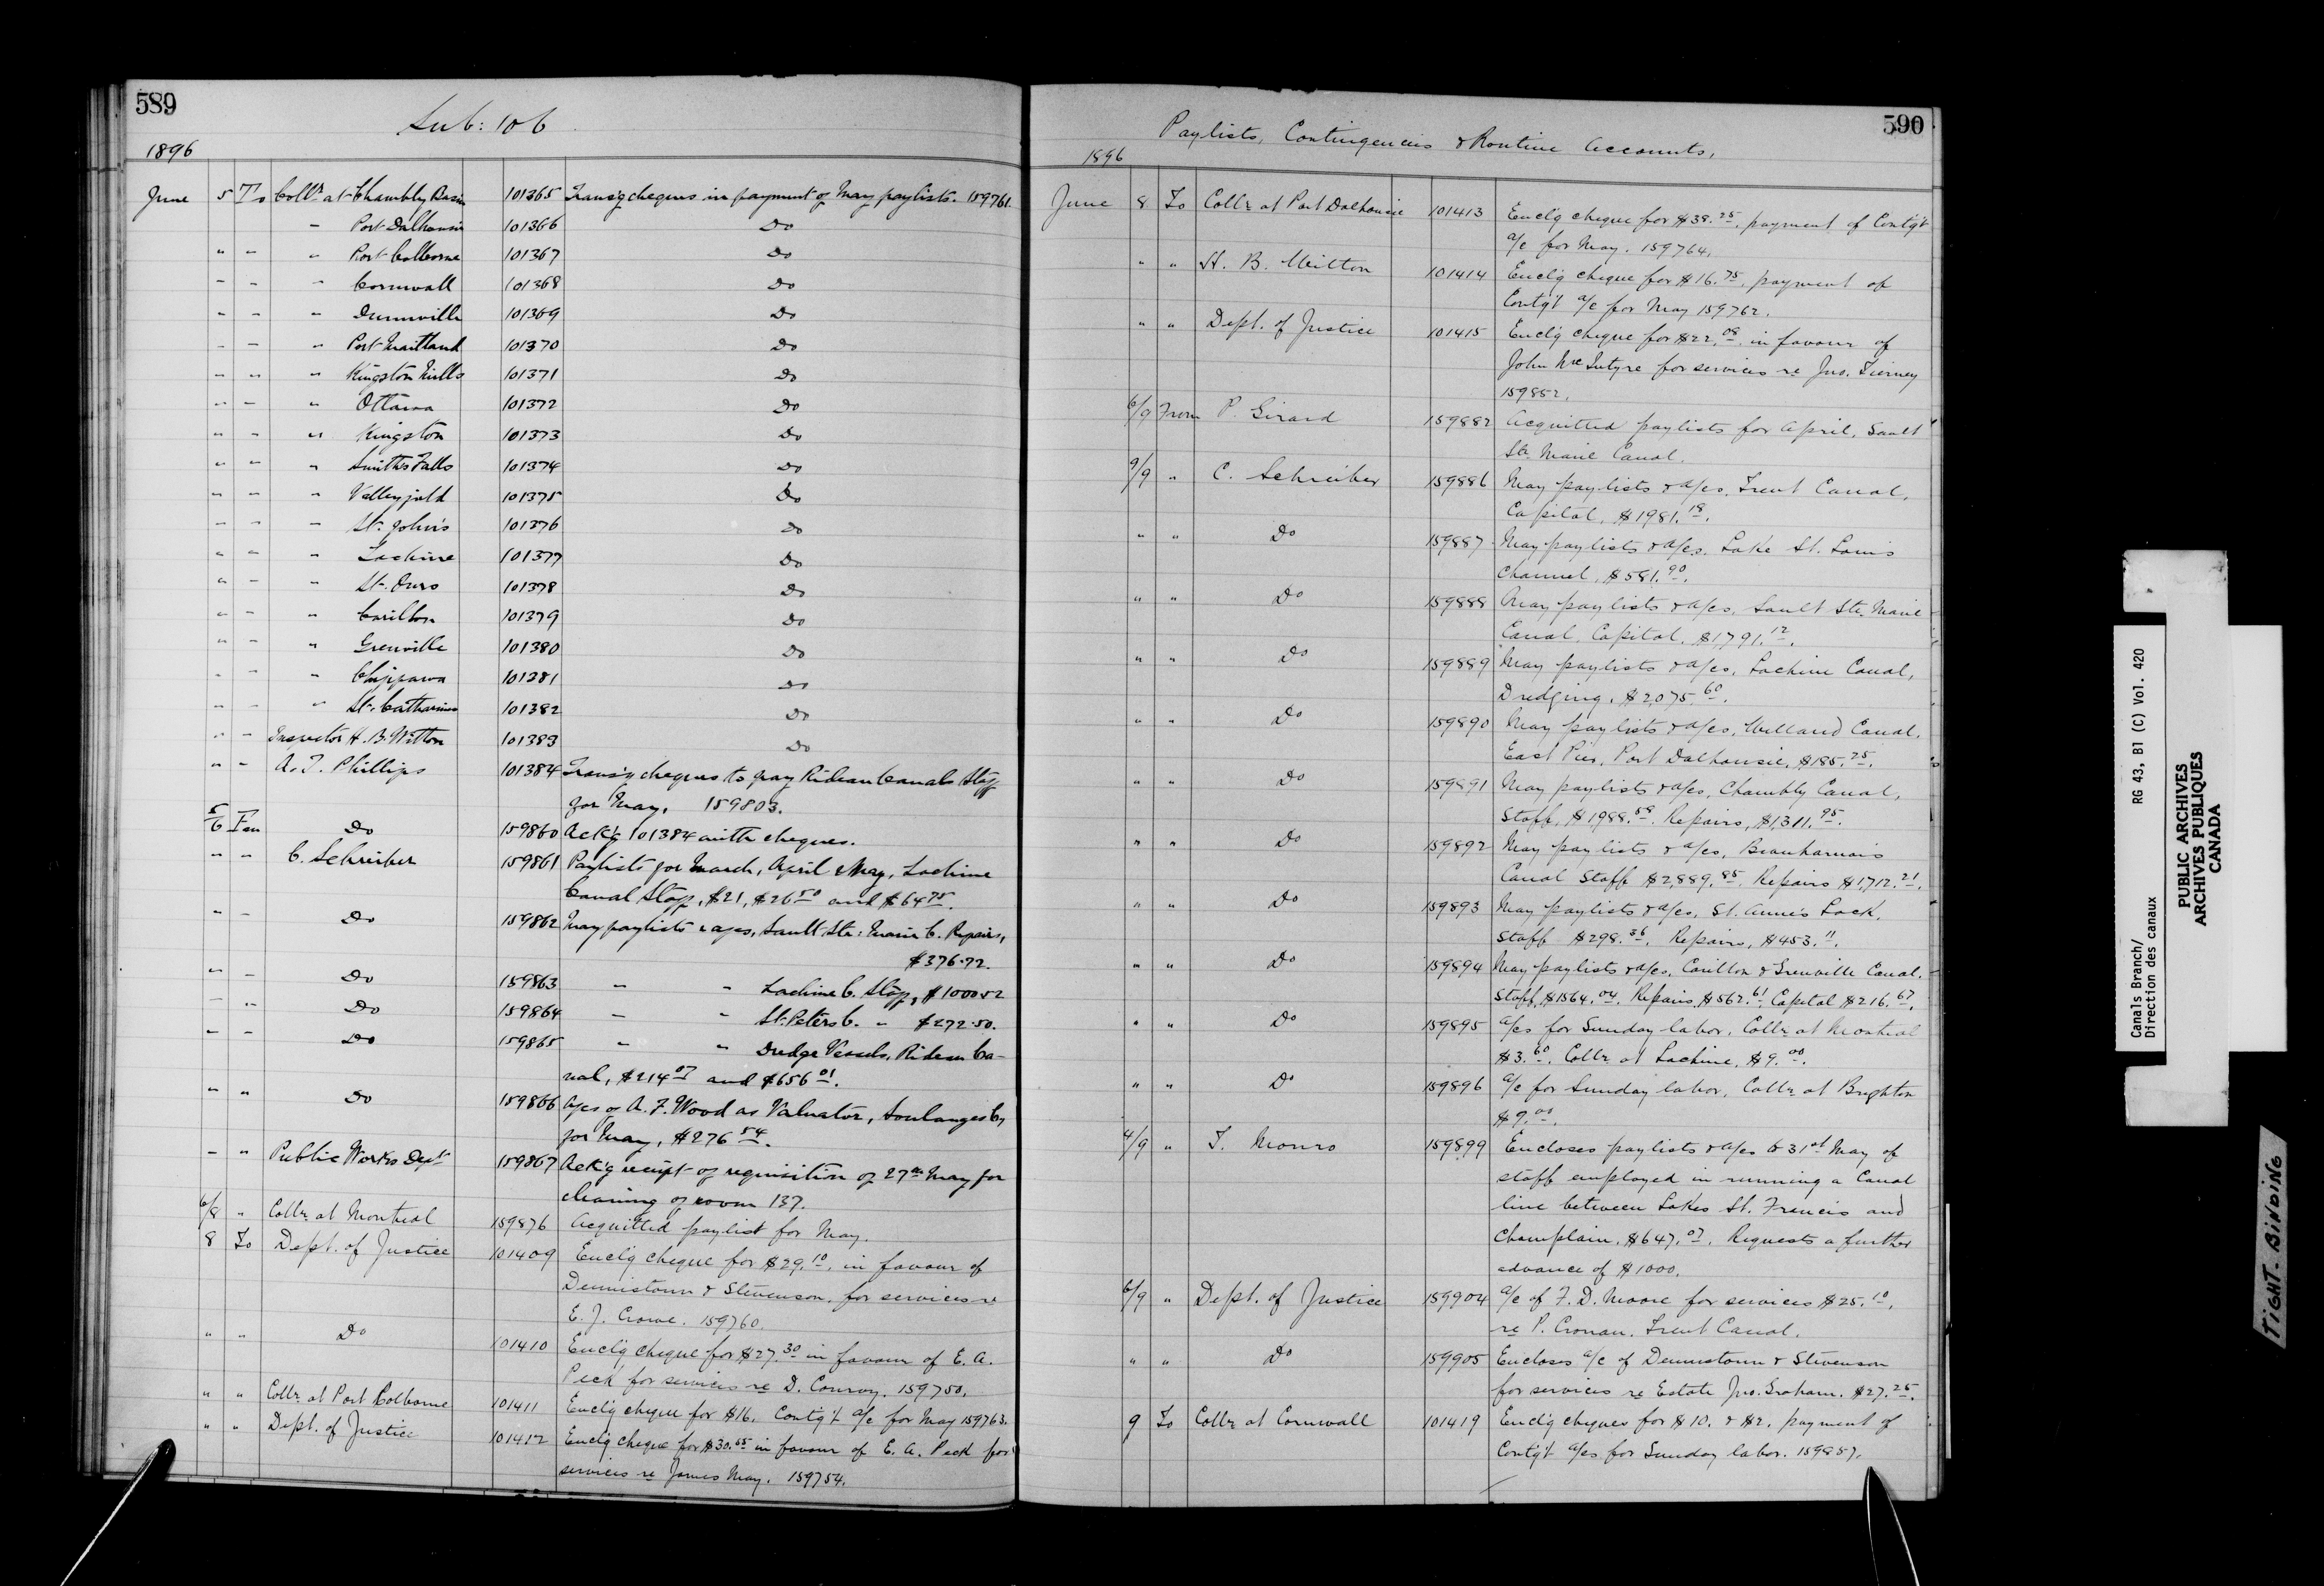 589
Sub: 106
1896
June 5 To Collr at Chambly Basin 101365 Transg cheques in payment of May paylists. 159761.
" Port Dalhousie 101366 Do
" " " Port Colborne 101367 Do
" " " Cornwall 101368 Do
" " " Dunnville 101369 Do
" " " Port Maitland 101370 Do
" " " Kingston Mills 101371 Do
" " " Ottawa 101372 Do
" " " Kingston 101373 Do
" " " Smiths Falls 101374 Do
" " " Valleyfield 101375 Do
" " " St. John's 101376 Do
" " " Lachine 101377 Do
" " " St. Ours 101378 Do
" " " Carillon 101379 Do
" " " Grenville 101380 Do
" " " Chippawa 101381 Do
" " " St. Catharines 101382 Do
" " Inspector H. B. Witton 101383 Do
" " A. T. Phillips 101384 Transg cheques to pay Rideau Canals Staff
for May. 159803.
5/6 Fm Do 159860 Ack'g 101384 with cheques.
" " C. Schreiber 159861 Paylists for March, April & May, Lachine
Canal Staff, $21, $26.50 and $64.75.
" " Do 159862 May paylists & a/cs, Sault Ste: Marie C. Repairs,
$376.72.
" " Do 159863 " " Lachine C. Staff, $1000.52
" " Do 159864 " " St. Peters C. " $272.50.
" " Do 159865 " " Dredge Vessels, Rideau Ca-
nal, $214.07 and $656.01.
" " Do 159866 A/cs of A. F. Wood as Valuator, Soulanges C,
for May, $276.54.
" " Public Works Dept 159867 Ack'g receipt of requisition of 27th May for
cleaning of room 137.
6/8 " Collr at Montreal 159876 Acquitted paylist for May.
8 To Dept. of Justice 101409 Enclg cheque for $29.10, in favour of
Dennistoun & Stevenson, for services re
E. J. Crowe. 159760.
" " Do 101410 Enclg cheque for $27.30 in favour of E. A.
Peck for services re D. Conroy. 159750.
" " Collr at Port Colborne 101411 Enclg cheque for $16. Contg't a/c for May 159763.
" " Dept. of Justice 101412 Enclg cheque for $30.65 in favour of E. A. Peck for
services re James May. 159754.
590
Paylists, Contingencies & Routine Accounts,
1896
June 8 To Collr at Port Dalhousie 101413 Enclg cheque for $38.25, payment of Contg't
a/c for May. 159764.
" " H. B. Witton 101414 Enclg cheque for $16.75, payment of
Contg't a/c for May 159762.
" " Dept. of Justice 101415 Enclg cheque for $22.08, in favour of
John McIntyre for services re Jno. Tierney
159852.
6/9 From P. Girard 159882 Acquitted paylists for April, Sault
Ste. Marie Canal.
9/9 " C. Schreiber 159886 May paylists & a/cs, Trent Canal,
Capital, $1981.18.
" " Do 159887 May paylists & a/cs. Lake St. Louis
Channel, $581.90.
" " Do 159888 May paylists & a/cs, Sault Ste. Marie
Canal, Capital, $1,791.12.
" " Do 159889 May paylists & a/cs, Lachine Canal,
Dredging, $2,075.60.
" " Do 159890 May paylists & a/cs, Welland Canal,
East Pier, Port Dalhousie, $185.25.
" " Do 159891 May paylists & a/cs, Chambly Canal,
Staff, $1988.59. Repairs, $1,311.95.
" " Do 159892 May paylists & a/cs, Beauharnois
Canal Staff $2,889.85. Repairs $1,712.21.
" " Do 159893 May paylists & a/cs, St. Anne's Lock.
Staff $298.36. Repairs, $453.11.
" " Do 159894 May paylists & a/cs, Carillon & Grenville Canal.
Staff, $1564.04. Repairs, $562.61. Capital $216.67.
" " Do 159895 a/cs for Sunday labor, Collr at Montreal
$3.60. Collr at Lachine, $9.00.
" " Do 159896 a/c for Sunday labor, Collr at Brighton
$9.00.
4/9 " T. Monro 159899 Encloses paylists & a/cs to 31st May of
staff employed in running a Canal
line between Lakes St. Francis and
Champlain, $647.07. Requests a further
advance of $1000.
6/9 " Dept. of Justice 159904 a/c of F. D. Moore for services $25.10,
re P. Cronan. Trent Canal.
" " Do 159905 Encloses a/c of Dennistoun & Stevenson
for services re Estate Jno. Graham. $27.25.
9 To Collr at Cornwall 101419 Enclg cheques for $10. & $2. payment of
Contg't a/cs for Sunday labor. 159857.
Canals Branch/ RG 43, B1 (C) Vol. 420
Direction des canaux
PUBLIC ARCHIVES
ARCHIVES PUBLIQUES
CANADA
TIGHT BINDING